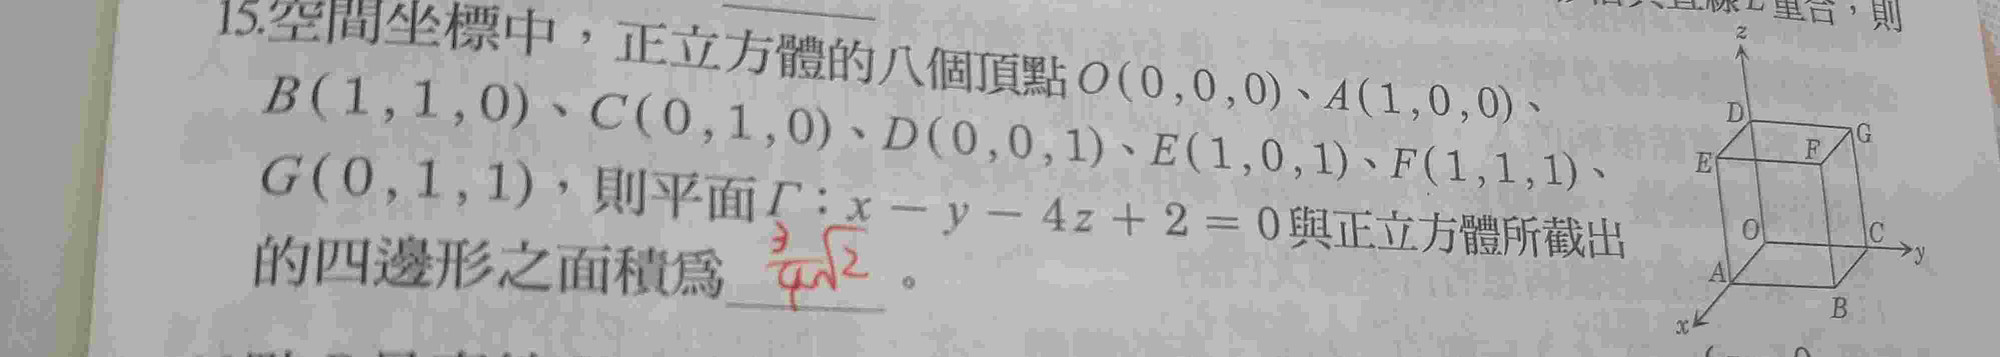 直線L重合，則
15.空間坐標中，正立方體的八個頂點O(0,0,0)、A(1,0,0)、
B(1,1,0)、C(0,1,0)、D(0,0,1)、E(1,0,1)、F(1,1,1)、
G(0,1,1)，則平面Γ：x－y－4z＋2＝0與正立方體所截出
的四邊形之面積為 3/4√2 。
z
D
G
E
F
O
C
y
A
B
x